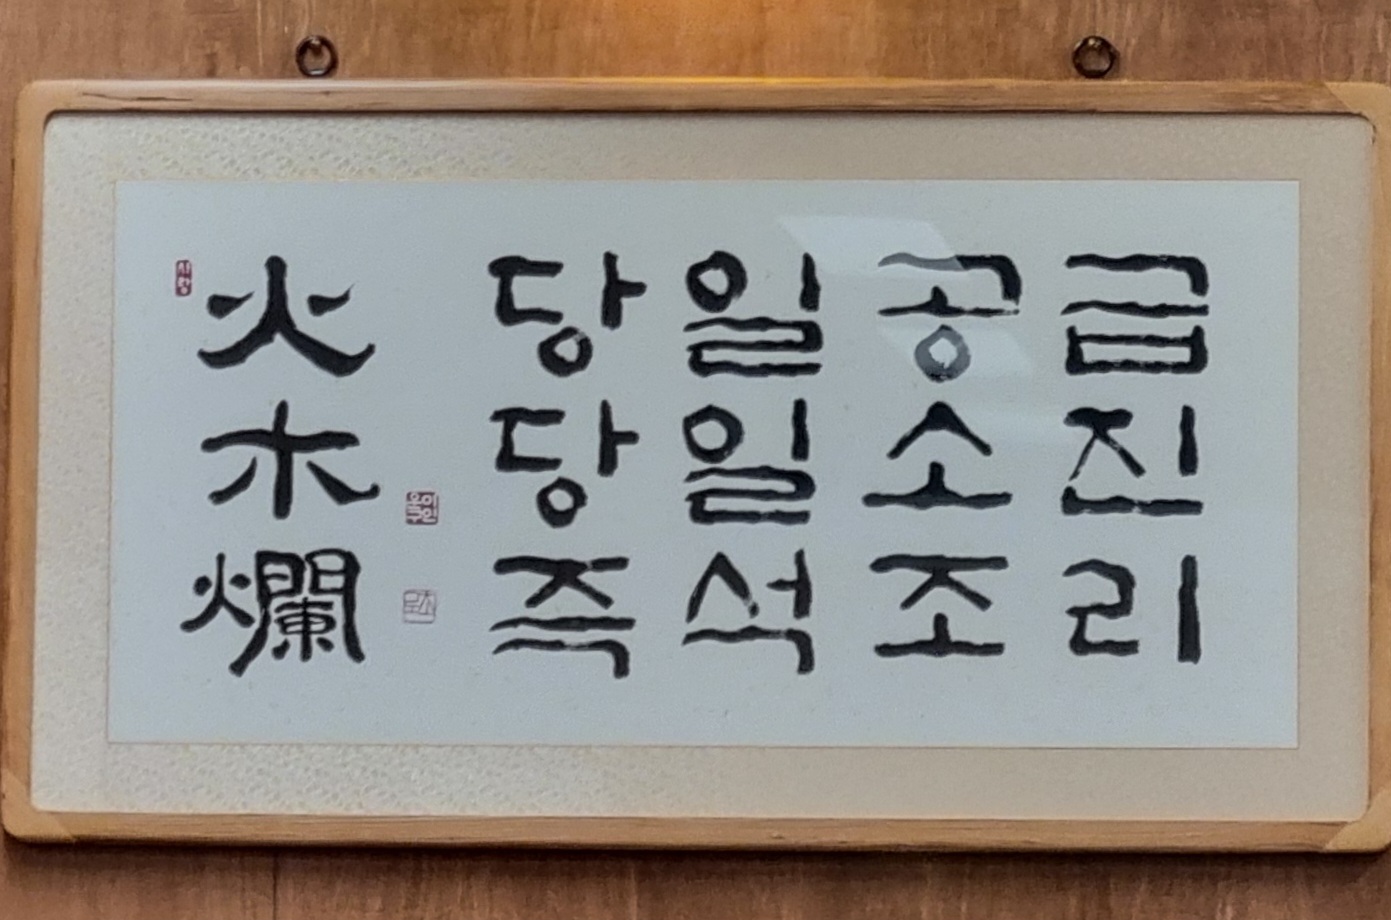 火木爛
당일공급
당일소진
즉석조리